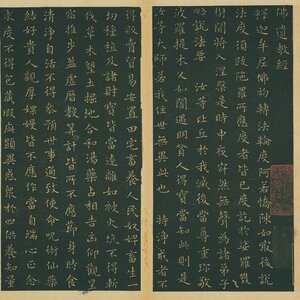 佛遺教經
釋迦牟尼佛初轉法輪度阿若憍陳如最後說
法度須跋陀羅所應度者皆已度訖於娑羅雙
樹間將入涅槃是時中夜寂然無聲為諸弟子
略說法要 汝等比丘於我滅後當尊重珍敬
波羅提木叉如闇遇明貧人得寶當知此則是汝
等大師若我住世無異此也 持淨戒者不
得販賣貿易安置田宅畜養人民奴婢畜生一
切種植及諸財寶皆當遠離如避火坑不得斬
伐草木墾土掘地合和湯藥占相吉凶仰觀星
宿推步盈虛曆數算計皆所不應節身時食
清淨自活不得參預世事通致使命咒術仙藥
結好貴人親厚媟嫚皆不應作當自端心正念
求度不得包藏瑕疵顯異惑眾於四供養知量